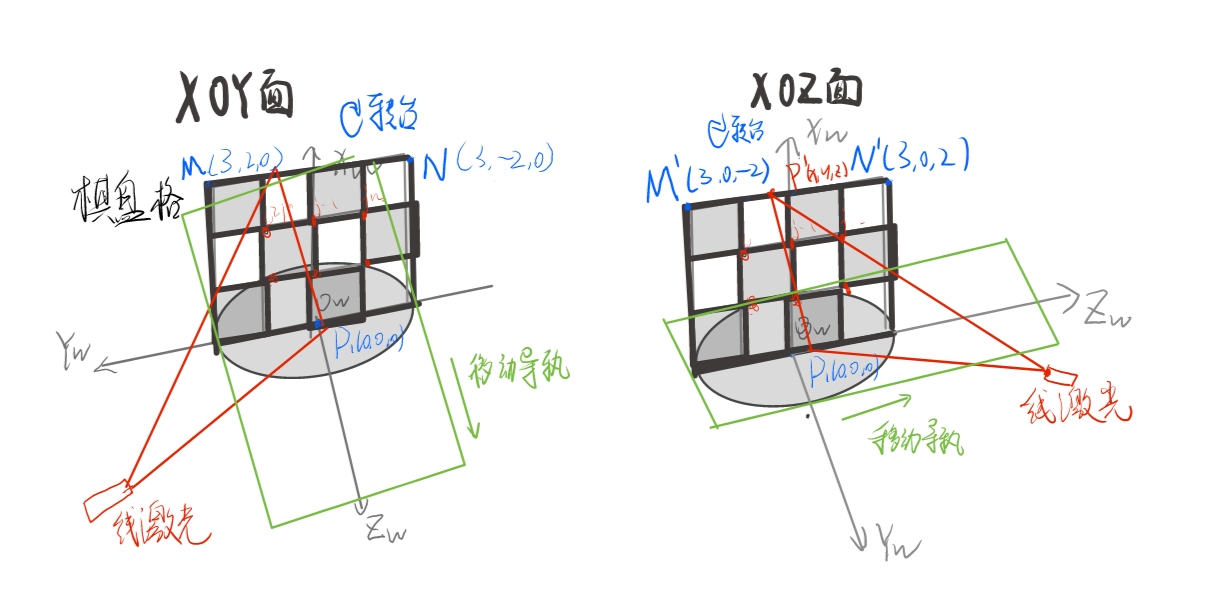 XOY面
C转台
M(3,2,0)
Xw
N(3,-2,0)
棋盘格
Ow
P1(0,0,0)
Yw
移动导轨
线激光
Zw
XOZ面
C转台
Xw
M'(3,0,-2)
N'(3,0,2)
Zw
P1(0,0,0)
线激光
移动导轨
Yw